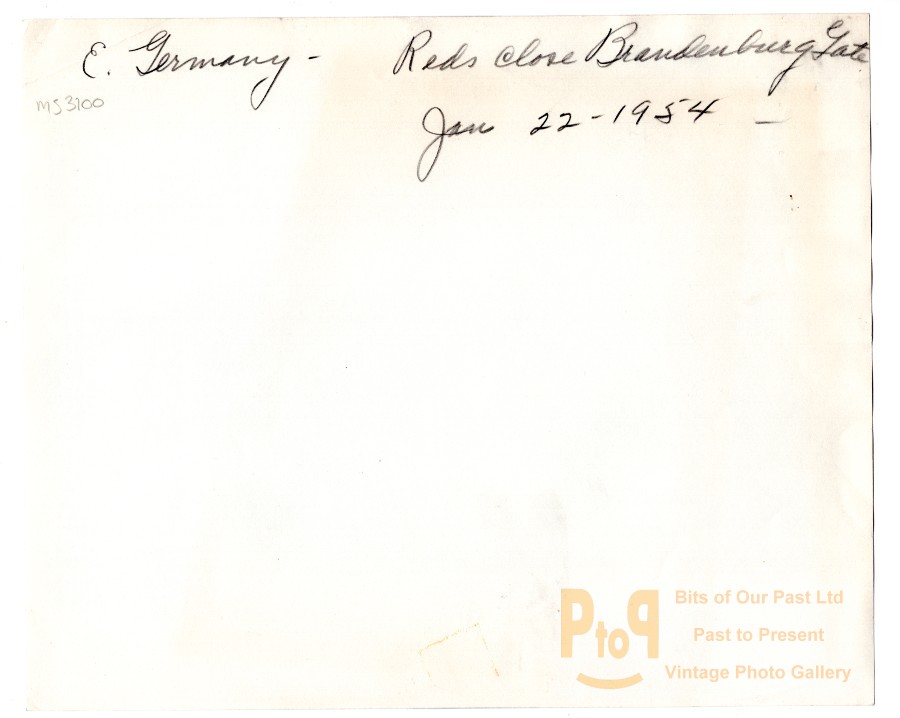 E. Germany - Reds close Brandenburg Gate
Jan 22-1954 -
MJ3700
PtoP
Bits of Our Past Ltd
Past to Present
Vintage Photo Gallery